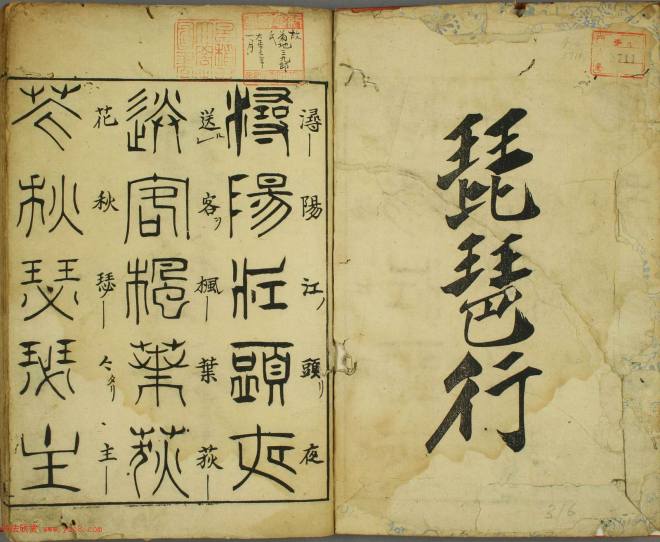 琵琶行
潯陽江頭夜
潯陽江頭夜
送客楓葉荻
送客楓葉荻
花秋瑟々主
花秋瑟瑟主
故
氏
316